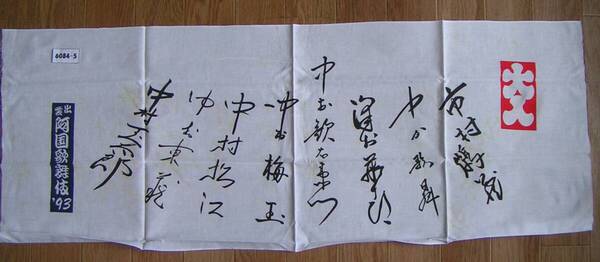 市村
中村歌昇
澤村藤十郎
中村歌右衛門
中村梅玉
中村松江
中村東蔵
中村
出雲
阿国歌舞伎
'93
6084-5